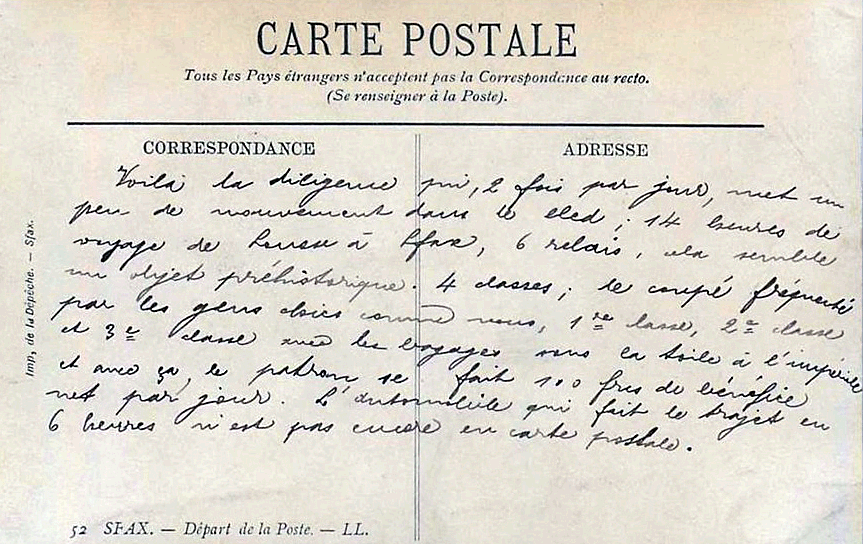 CARTE POSTALE
Tous les Pays étrangers n'acceptent pas la Correspondance au recto.
(Se renseigner à la Poste).
CORRESPONDANCE
ADRESSE
Voilà la diligence qui, 2 fois par jour, met un
peu de mouvement dans le bled ; 14 heures de
voyage de Sousse à Sfax, 6 relais, cela semble
un objet préhistorique. 4 classes ; le coupé fréquenté
par les gens chics comme nous, 1re classe, 2e classe
et 3e classe avec les bagages sous la toile à l'impériale
et avec ça, le patron se fait 100 frcs de bénéfice
net par jour. L'automobile qui fait le trajet en
6 heures n'est pas encore en carte postale.
Imp. de la Dépêche. — Sfax.
52 SFAX. — Départ de la Poste. — LL.